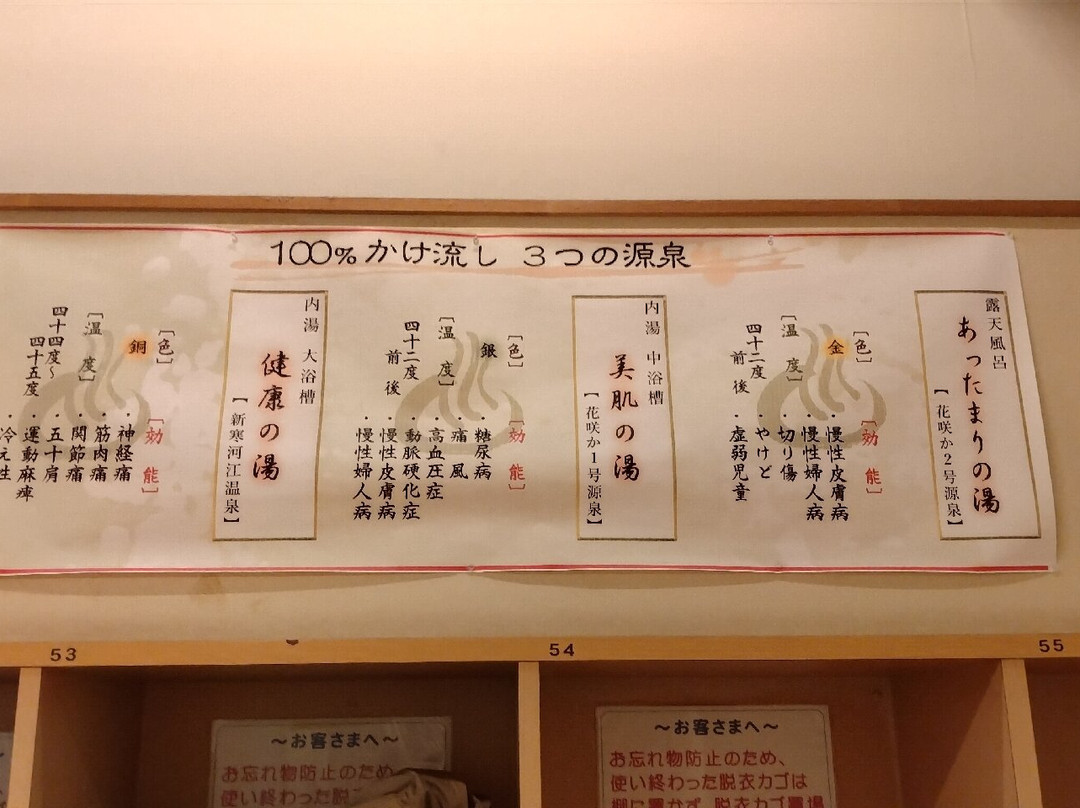 100%かけ流し 3つの源泉
露天風呂
あったまりの湯
【花咲か2号源泉】
[色]
金
[温度]
四十二度
前後
[効能]
・慢性皮膚病
・慢性婦人病
・切り傷
・やけど
・虚弱児童
内湯 中浴槽
美肌の湯
【花咲か1号源泉】
[色]
銀
[温度]
四十二度
前後
[効能]
・糖尿病
・痛風
・高血圧症
・動脈硬化症
・慢性皮膚病
・慢性婦人病
内湯 大浴槽
健康の湯
【新寒河江温泉】
[色]
銅
[温度]
四十四度～
四十五度
[効能]
・神経痛
・筋肉痛
・関節痛
・五十肩
・運動麻痺
・冷え性
53
54
55
～お客さまへ～
お忘れ物防止のため
使い終わった脱
～お客さまへ～
お忘れ物防止のため、
使い終わった脱衣カゴは
棚に置かず、脱衣カゴ置場